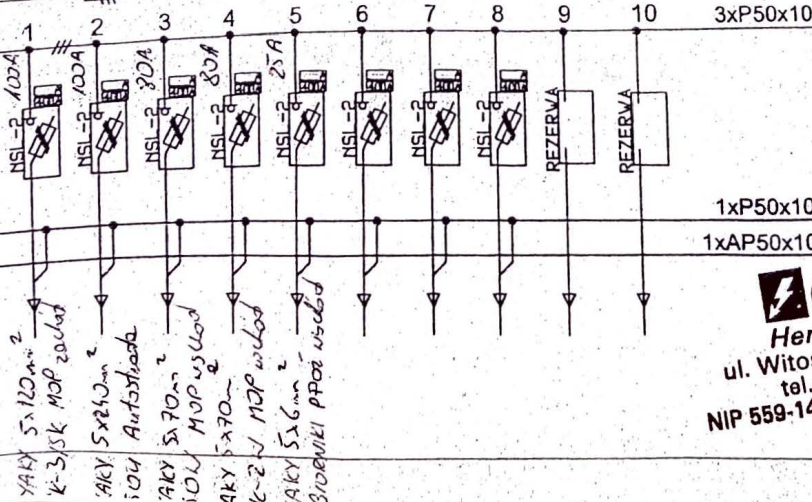 1 2 3 4 5 6 7 8 9 10
3xP50x10
100A 100A 80A 80A 25A
NSL-2 NSL-2 NSL-2 NSL-2 NSL-2 NSL-2 NSL-2 NSL-2 REZERWA REZERWA
1xP50x10
1xAP50x10
YAKY 5x120mm²
K-3/SK MOP zachód
AKY 5x240mm²
Autostrada
AKY 5x70m²
MOP wschód
AKY 5x70m²
K-2 MOP wschód
AKY 5x6mm²
BIORNIKI PPOŻ wschód
Her
ul. Witos
tel.
NIP 559-14